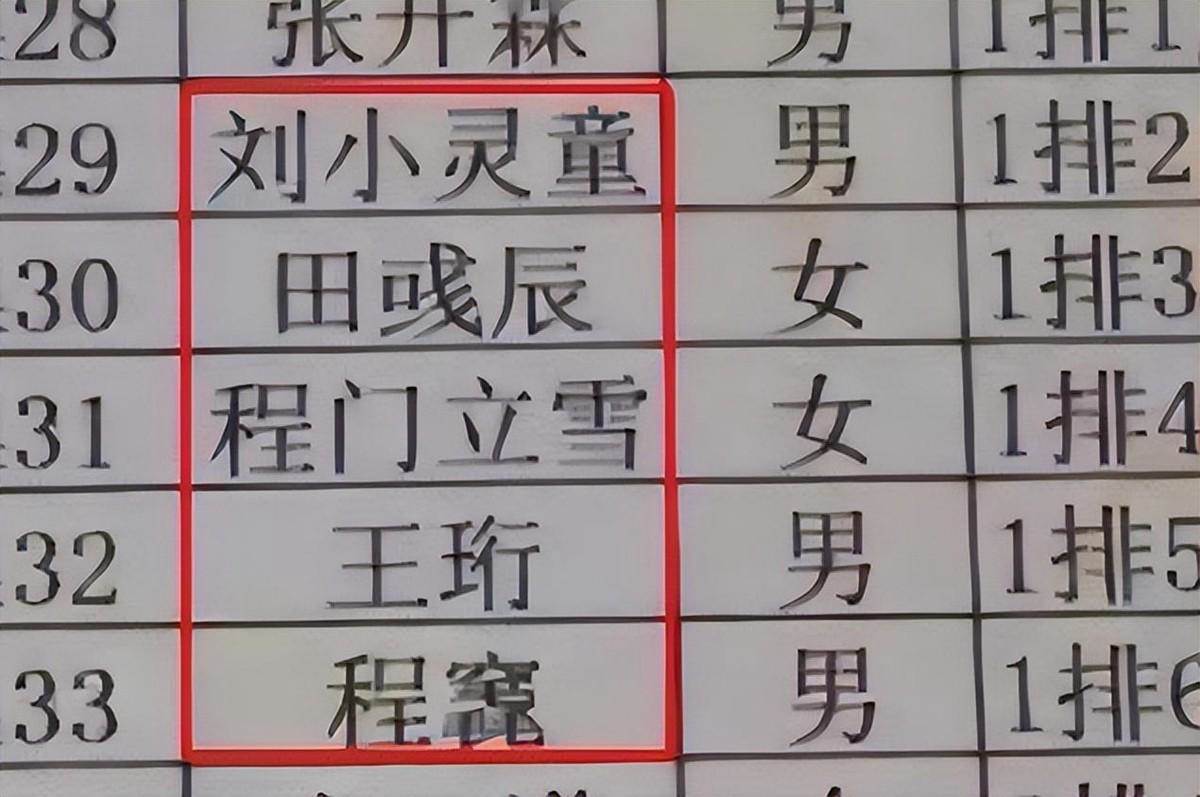 28 张开霖 男 1排1
29 刘小灵童 男 1排2
30 田彧辰 女 1排3
31 程门立雪 女 1排4
32 王珩 男 1排5
33 程 男 1排6